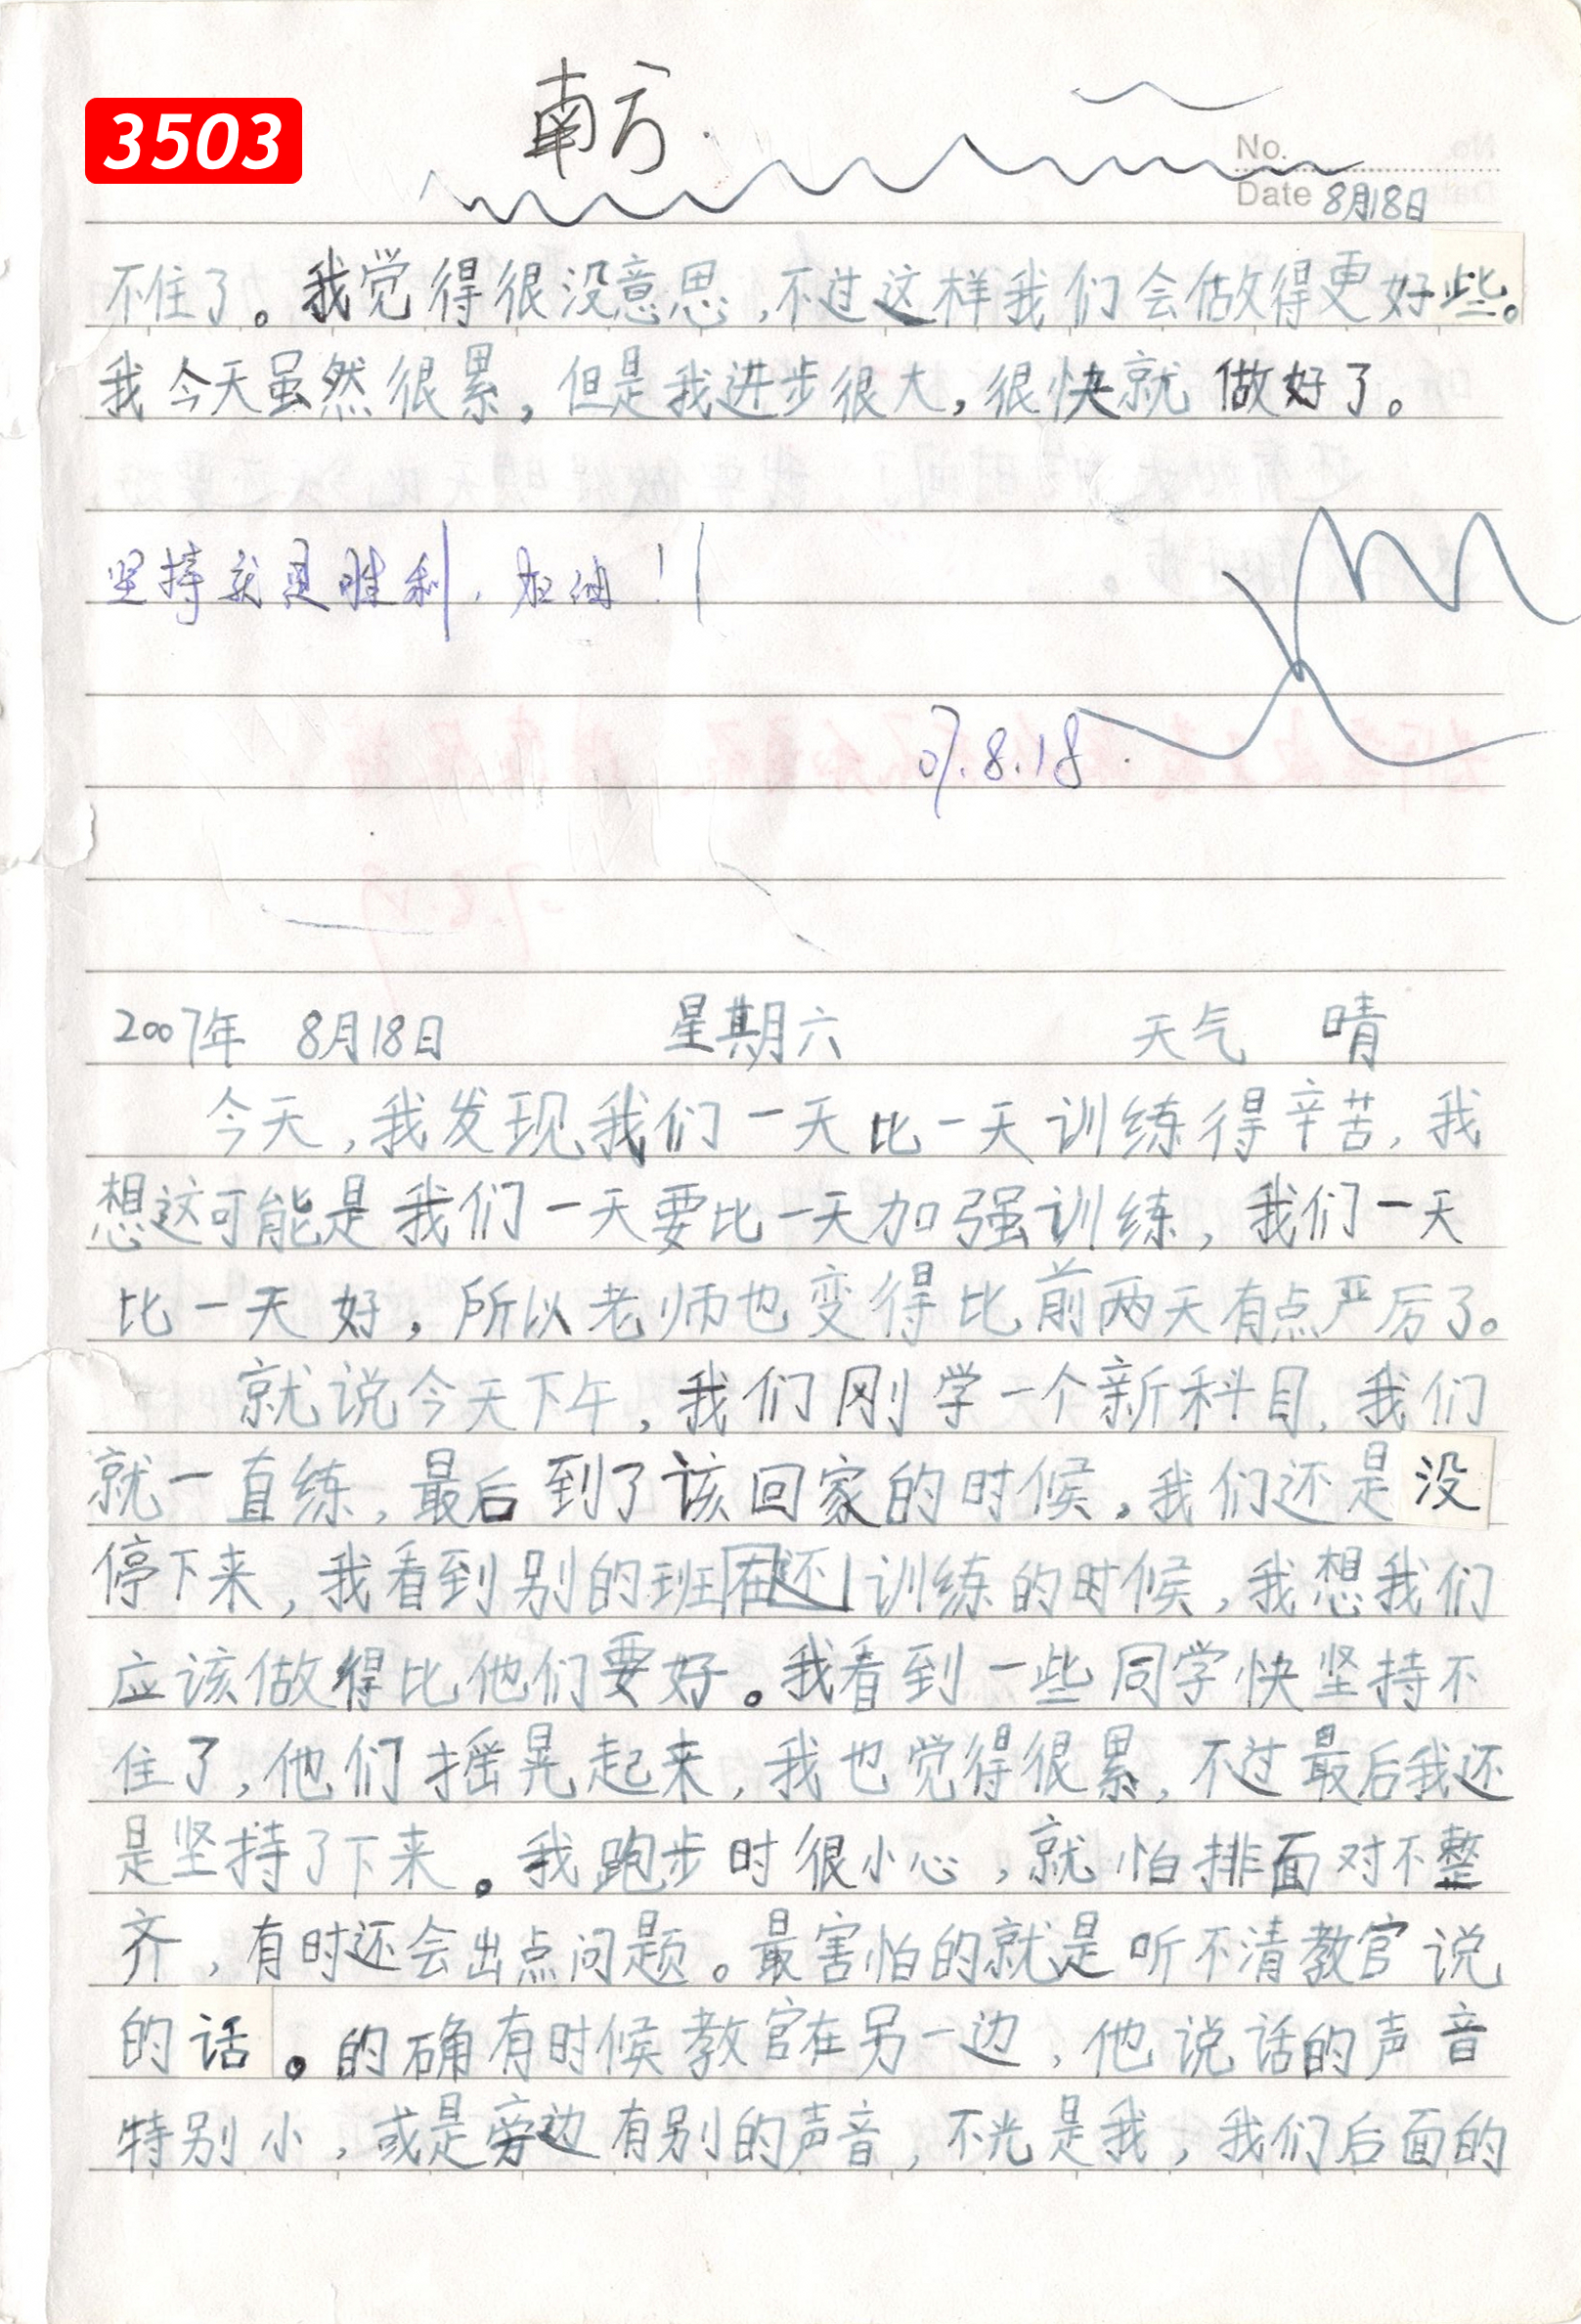 3503
南方.
No.
Date 8月18日
不住了。我觉得很没意思,不过这样我们会做得更好些。
我今天虽然很累,但是我进步很大,很快就做好了。
坚持就是胜利,加油!
07.8.18.
2007年 8月18日 星期六 天气 晴
今天,我发现我们一天比一天训练得辛苦,我
想这可能是我们一天要比一天加强训练,我们一天
比一天好,所以老师也变得比前两天有点严厉了。
就说今天下午,我们刚学一个新科目,我们
就一直练,最后到了该回家的时候,我们还是没
停下来,我看到别的班在还训练的时候,我想我们
应该做得比他们要好。我看到一些同学快坚持不
住了,他们摇晃起来,我也觉得很累,不过最后我还
是坚持了下来。我跑步时很小心,就怕排面对不整
齐,有时还会出点问题。最害怕的就是听不清教官说
的话。的确有时候教官在另一边,他说话的声音
特别小,或是旁边有别的声音,不光是我,我们后面的